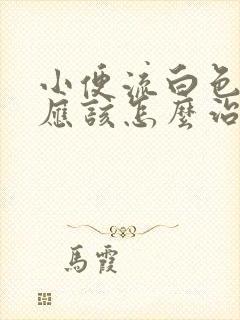 小便流白色
應該怎麼治
馬霞